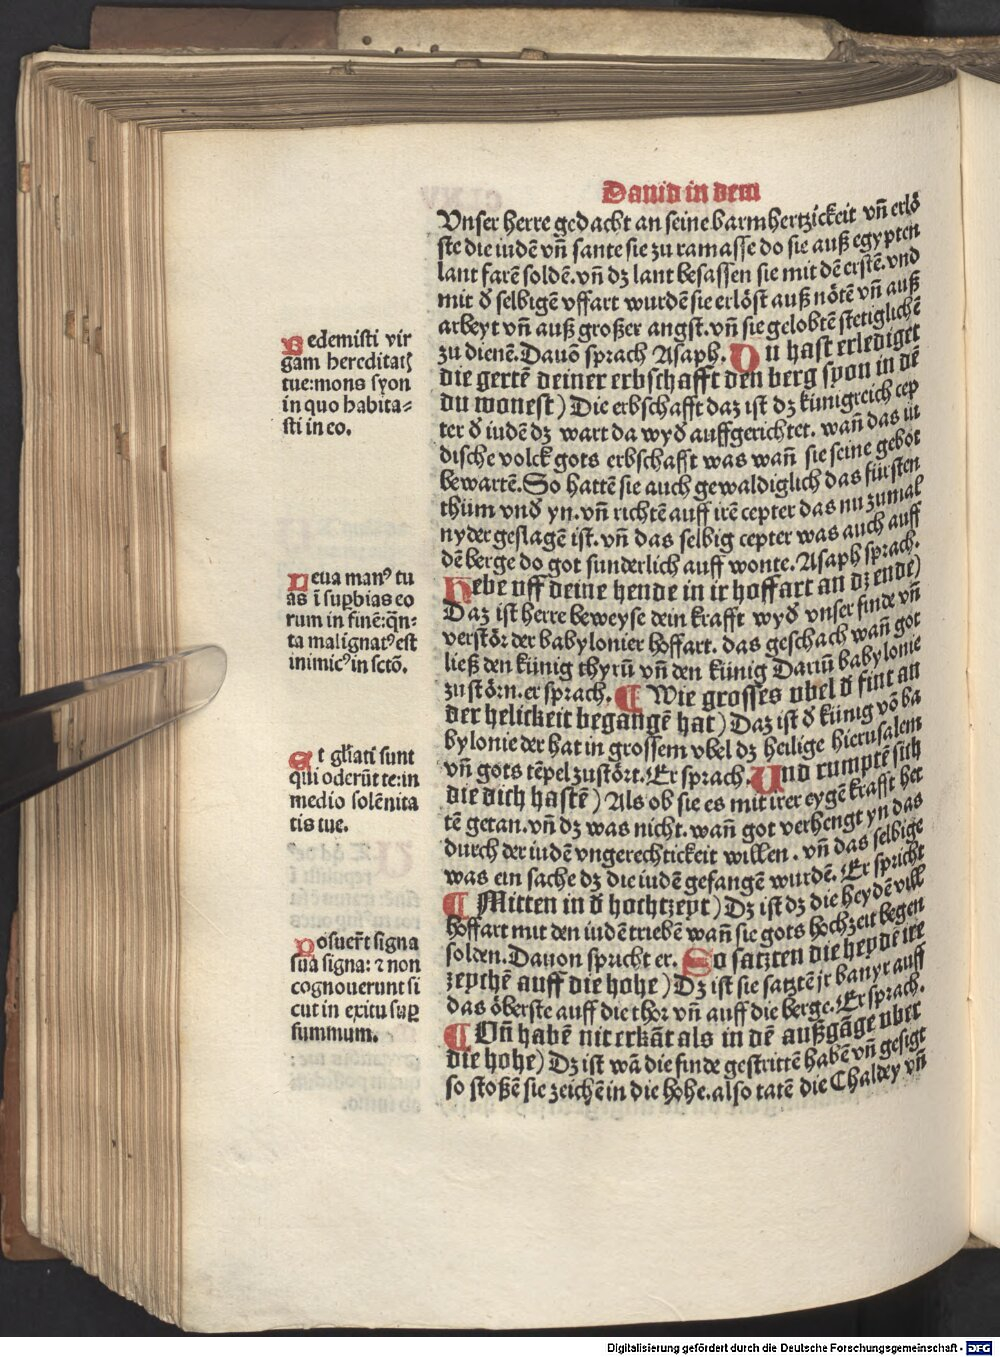 Dauid in dem
Vnser herre gedacht an seine barmhertzickeit vñ erlö
ste die iudē vñ sante sie zu ramasse do sie auß egypten
lant farē soldē. vñ dz lant besassen sie mit dē erstē. vnd
mit d̕ selbigē vffart wurdē sie erlöst auß nötē vñ auß
arbeyt vñ auß großer angst. vñ sie gelobtē stetiglichē
zu dienē. Dauō sprach Asaph. Du hast erlediget
die gertē deiner erbschafft den berg syon in dē
du wonest) Die erbschafft daz ist dz künigreich cep
ter d̕ iudē dz wart da wyd̕ auffgerichtet. wañ das iü
dische volck gots erbschafft was wañ sie seine gebot
bewartē. So hattē sie auch gewaldiglich das fürsten
thüm vnd̕ yn. vñ richtē auff irē cepter das nu zumal
nyder geslagē ist. vñ das selbig cepter was auch auff
dē berge do got sunderlich auff wonte. Asaph sprach.
Hebe uff deine hende in ir hoffart an dz ende)
Daz ist herre beweyse dein krafft wyd̕ vnser finde vñ
verstör der babylonier hoffart. das geschach wañ got
ließ den künig thyrū vñ den künig Dariū babylonie
zu störn. er sprach. ¶ Wie grosses ubel d̕ fint an
der helickeit begangē hat) Daz ist d̕ künig vō ba
bylonie der hat in grossem vbel dz heilige hierusalem
vñ gots tēpel zustört. Er sprach. Und rumptē sich
die dich hastē) Als ob sie es mit irer eygē krafft het
tē getan. vñ dz was nicht. wañ got verhengt yn das
durch der iudē vngerechtickeit willen. vñ das selbige
was ein sache dz die iudē gefangē wurdē. Er spricht
¶ Mitten in d̕ hochtzeyt) Dz ist dz die heydē vill
hoffart mit den iudē triebē wañ sie gots hochzeit begen
solden. Dauon spricht er. So satzten die heydē ire
zeychē auff die hohe) Dz ist sie satztē jr banyr auff
das öberste auff die thor vñ auff die berge. Er sprach.
¶ Vñ habē nit erkāt als in dē außgāge uber
die hohe) Dz ist wā die finde gestrittē habē vñ gesigt
so stoßē sie zeichē in die hohe. also tatē die Chaldey vñ
Redemisti vir
gam hereditatꝭ
tue: mons syon
in quo habita=
sti in eo.
Leua manꝰ tu
as ī suꝑbias eo
rum in finē: q̄n=
ta malignatꝰ est
inimicꝰ in sctō.
Et gl̄iati sunt
qui oderūt te: in
medio solēnita
tis tue.
Posuer̄t signa
sua signa: ⁊ non
cognouerunt si
cut in exitu suꝑ
summum.
Digitalisierung gefördert durch die Deutsche Forschungsgemeinschaft - DFG